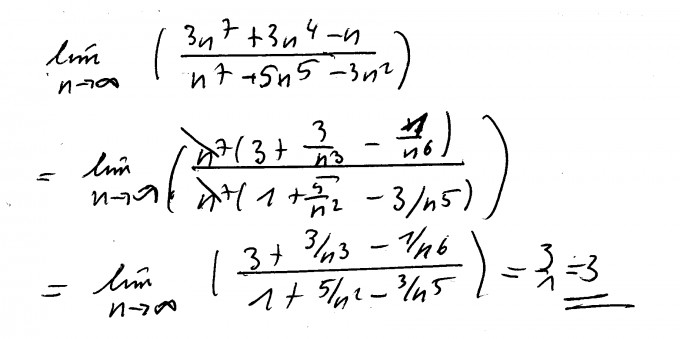 lim n→∞ ( (3n⁷ + 3n⁴ - n) / (n⁷ + 5n⁵ - 3n²) )
= lim n→∞ ( n⁷(3 + 3/n³ - 1/n⁶) / n⁷(1 + 5/n² - 3/n⁵) )
= lim n→∞ ( (3 + 3/n³ - 1/n⁶) / (1 + 5/n² - 3/n⁵) ) = 3/1 = 3